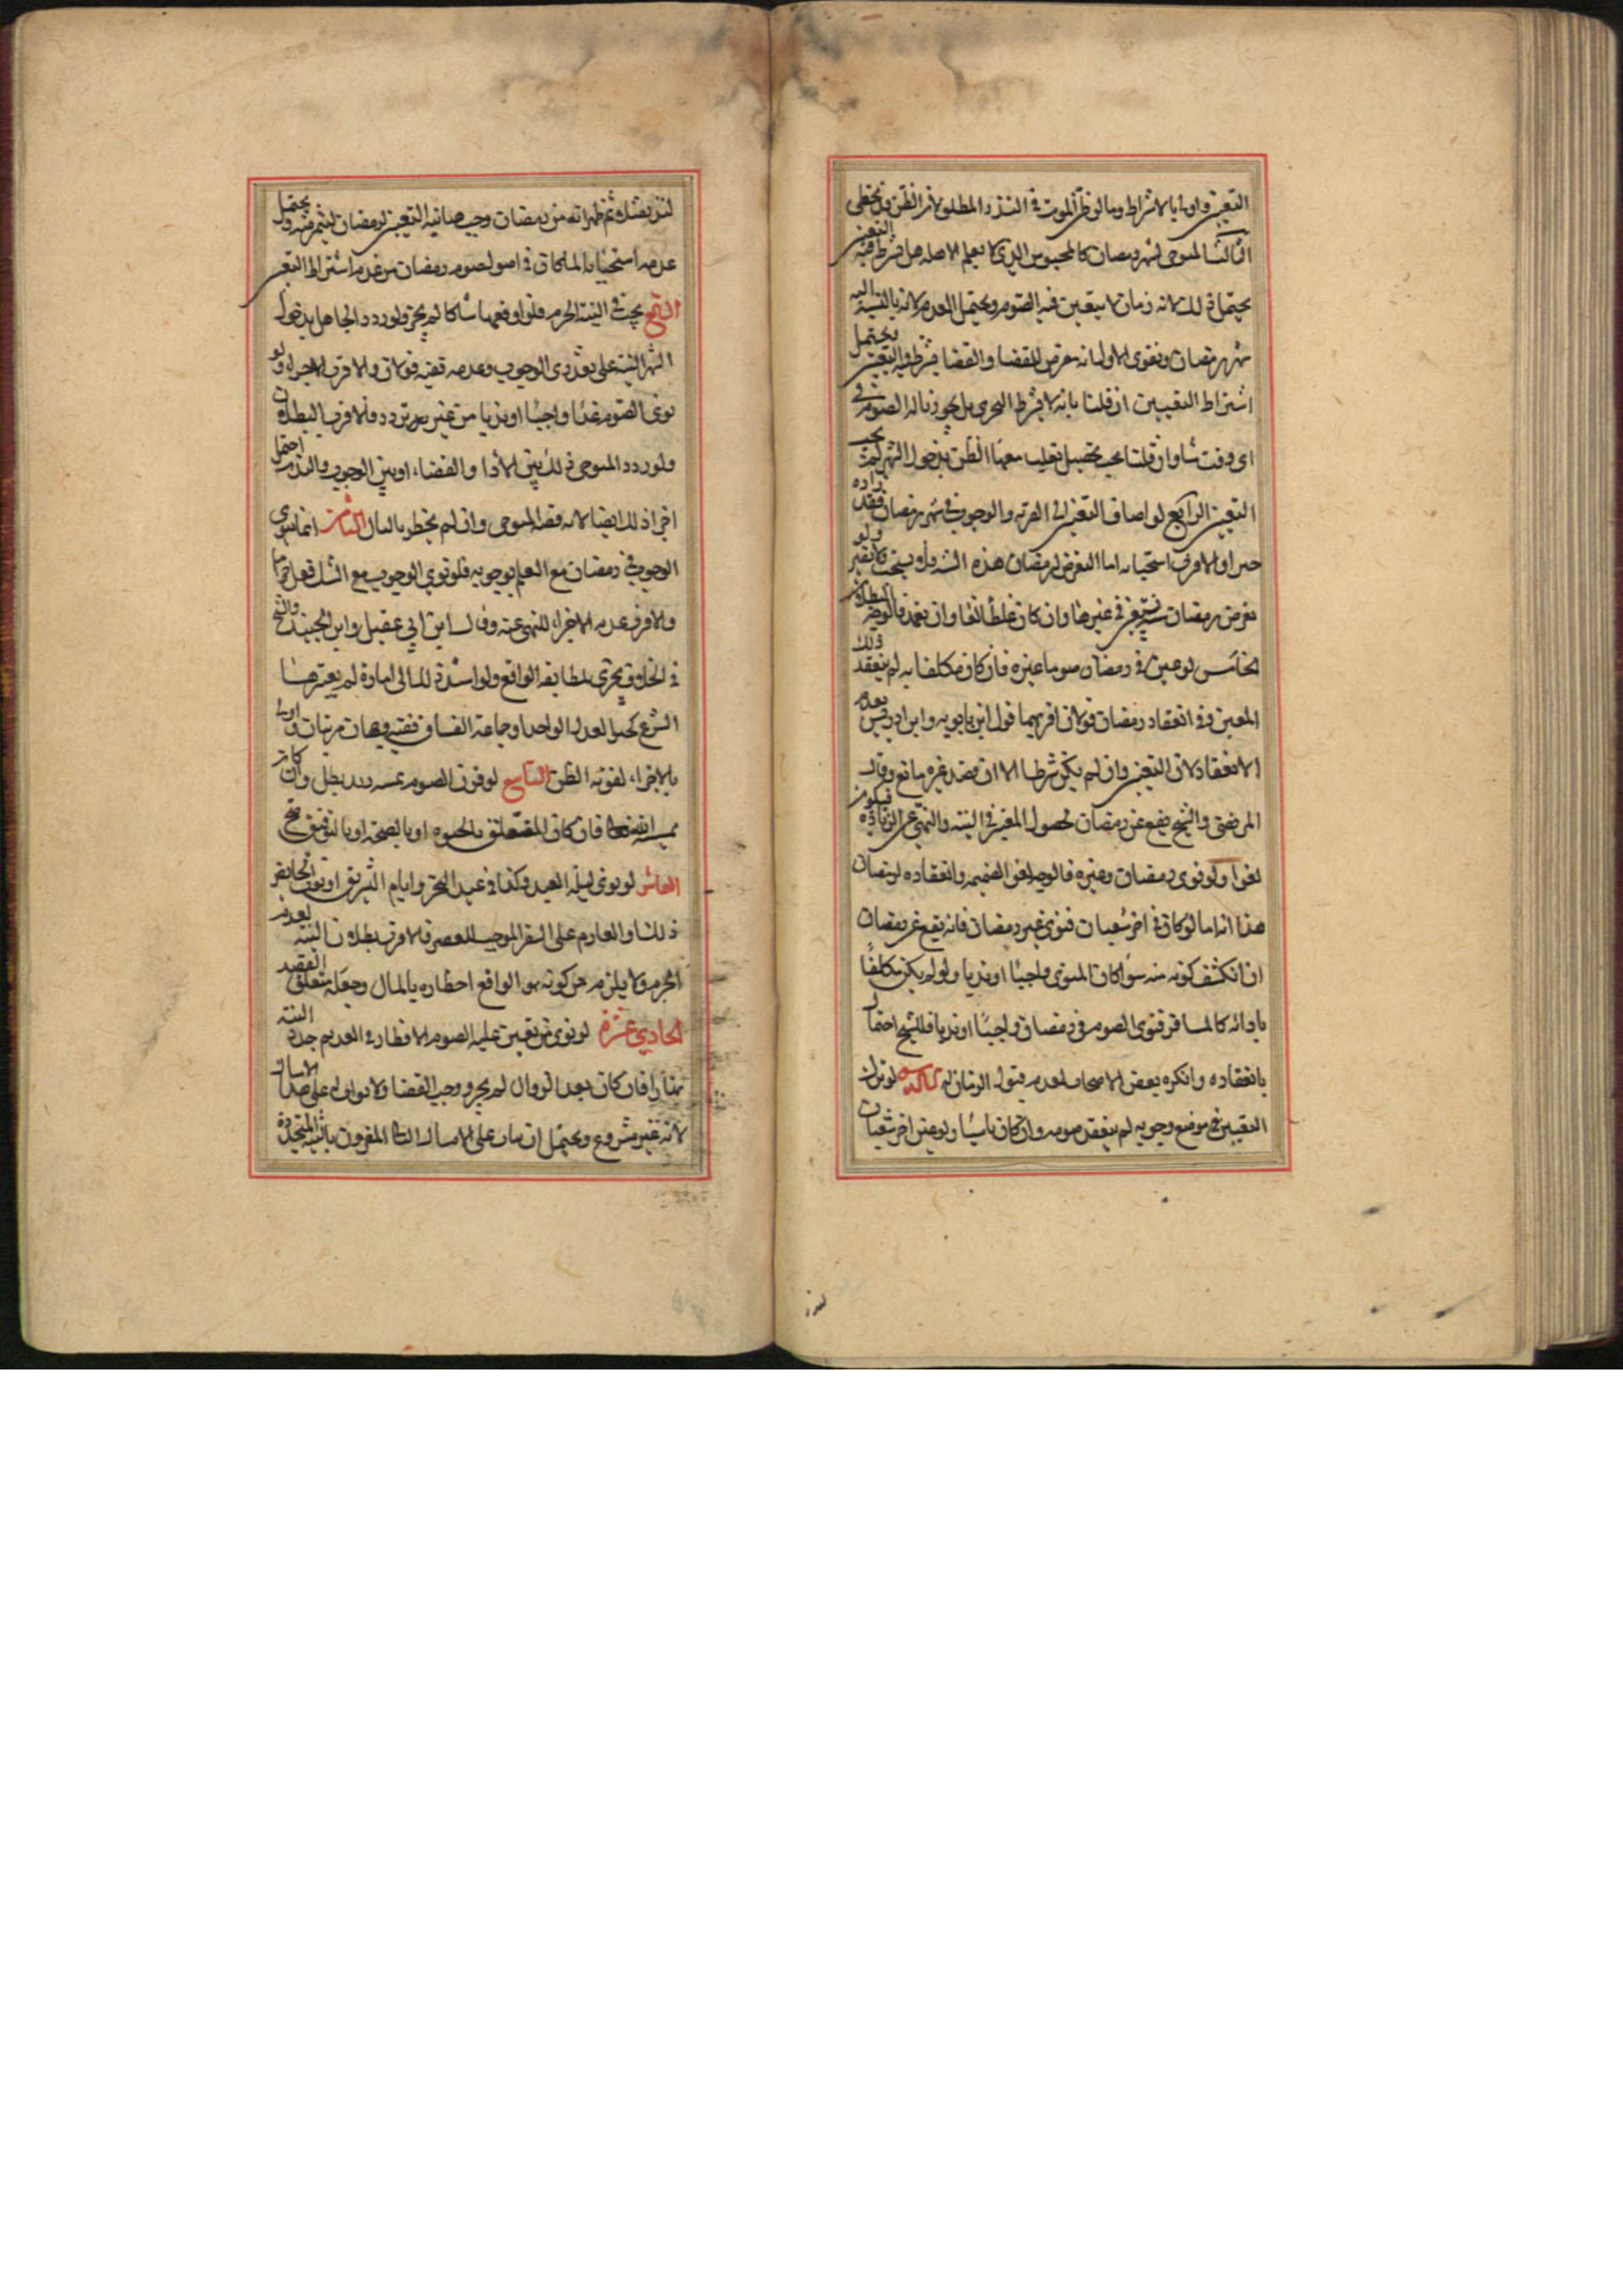 التعيين واولى بالاشتراط وما لو ظن الموت في النذر المطلق لان الظن قد يخطي
الثالث المتوخي لشهر رمضان كالمحبوس الذي لا يعلم الاهله هل يشترط فيه التعيين
يحتمل ذلك لانه زمان لا يتعين فيه الصوم ويحتمل العدم لانه بالنسبة اليه
شهر رمضان ويقوى الاول لانه معرض للقضا والقضا يشترط فيه التعيين ويحتمل
اشتراط التعيين ان قلنا بانه لا يشترط التحري بل يجوز ناله الصوم في
اي وقت شا وان قلنا يجب تحصيل تغليب معها الظن بدخول الشهر لم يجب
التعيين الرابع لو اضاف التعيين الى القربة والوجوب في شهر رمضان فقد زاده
خيرا والاقرب استحبابه اما التعرض لرمضان هذه السنة فلا يستحب ولا يضر ولو
تعرض برمضان سنة معين في غيرها وان كان غلطا لغا وان تعمد فالوجه البطلان
الخامس لو عين في رمضان صوما غيره فان كان مكلفا به لم ينعقد ذلك
المعين وفي انعقاد رمضان قولان اقربهما قول ابن بابويه وابن ادريس بعدم
الانعقاد لان التعيين وان لم يكن شرطا الا ان قصد غيره مانع وقال
المرتضى والشيخ يقع عن رمضان لحصول المعين في النية والنهي عن الزيادة فيكون
لغوا ولو نوى رمضان وغيره فالوجه لغو الضميمه وانعقاده لرمضان
هذا اذا ما لو كان في اخر شعبان فنوى غير رمضان فانه يقع عن رمضان
ان انكشف كونه منه سوا كان المنوى واجبا او ندبا ولو لم يكن مكلفا
بادائه كالمسافر فنوى الصوم في رمضان واجبا او ندبا فللشيخ احتمال
بانعقاده وانكره بعض الاصحاب لعدم قبول الزمان له السادس لو ترك
التعيين في موضع وجوبه لم ينعقد صومه وان كان ناسيا ولو عين اخر شعبان
لندب ثم ظهر انه من رمضان وجب صانيه التعيين لرمضان ليتميز منه ويحتمل
عدمه استحبابا لما كان في اصول صوم رمضان من عدم اشتراط التعيين
السابع يجب في النية الجزم فلو اوقعها شاكا لم يجز ولو ردد الجاهل بدخول
الشهر النية على تقديرى الوجوب وعدمه ففيه قولان والاقرب الاجزاء ولو
نوى الصوم غدا واجبا او ندبا من غير تردد فالاقرب البطلان
ولو ردد المتوخي ذلك بين الادا والقضاء او بين الوجوب والندب احتمل
اجزا ذلك ايضا لانه قصد المتوخي وان لم يخطر بالبال الثامن انما ينوي
الوجوب في رمضان مع العلم بوجوبه فلو نوى الوجوب مع الشك فعل حراما
والاقرب عدم الاجزاء للنهي عنه وقال ابن ابي عقيل وابن الجنيد والشيخ
في الخلاف يجزى لمطابقة الواقع ولو استند الى امارة لم يعتبرها
الشرع كخبر العدل الواحد او جماعة الفساق ففيه وجهان مرتبان واولى
بالاجزاء لقوة الظن التاسع لو قرن الصوم بمشية الله بطل وان كان
بمشية الله فان كان المتعلق بالحيوه او بالصحة او بالتوفيق صح
العاشر لو نوى ليلة العيد وكذا في عيد النحر وايام التشريق او نوت الحائض
ذلك او العازم على السفر الموجب للقصر فالاقرب بطلان النية لعدم
الجزم ولا يلزم من كونه هو الواقع احضاره بالبال وجعله متعلق القصد
الحادي عشر لو نوى من تعين عليه الصوم الافطار في الغد ثم جدد النية
نهارا فان كان بعد الزوال لم يجز ووجب القضا ولا ثواب له على هذا الامساك
لانه غير مشروع ويحتمل ان يثاب على الامساك الثاني المقرون بالنية المتجددة